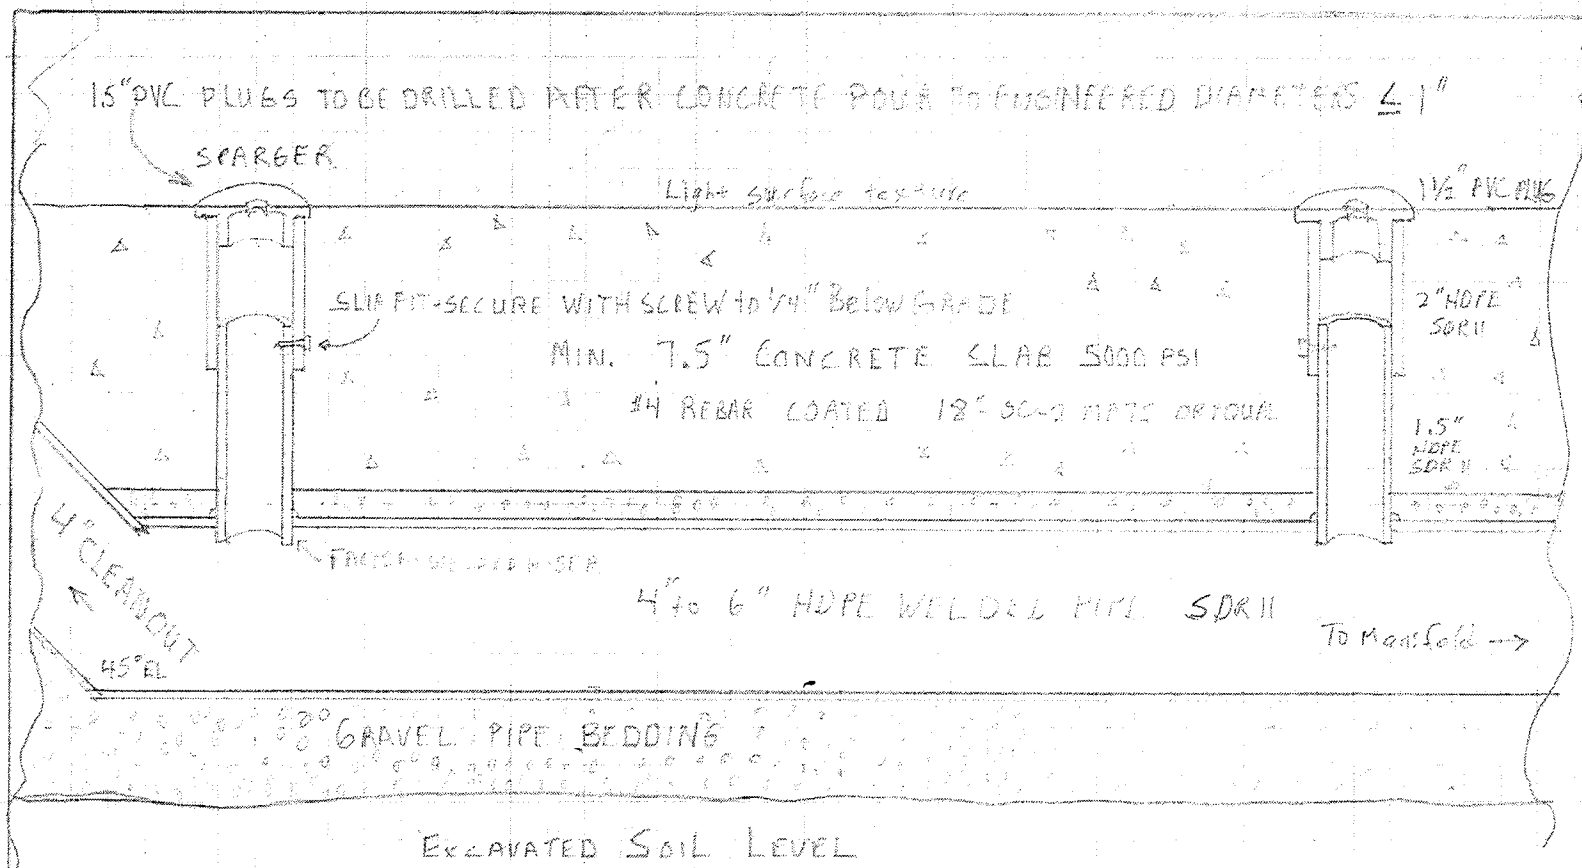 1.5" PVC PLUGS TO BE DRILLED AFTER CONCRETE POUR TO ENGINEERED DIAMETERS ≤ 1"
SPARGER
Light surface texture
1½" PVC PLUG
SLIP FIT-SECURE WITH SCREW to 1/4" Below GRADE
2" HDPE
SDR11
MIN. 7.5" CONCRETE SLAB 5000 PSI
#4 REBAR COATED 18" OPTIONAL
1.5"
HDPE
SDR11
4" CLEANOUT
4" to 6" HDPE WELDED PIPE SDR11
To Manifold →
45° EL
GRAVEL PIPE BEDDING
EXCAVATED SOIL LEVEL